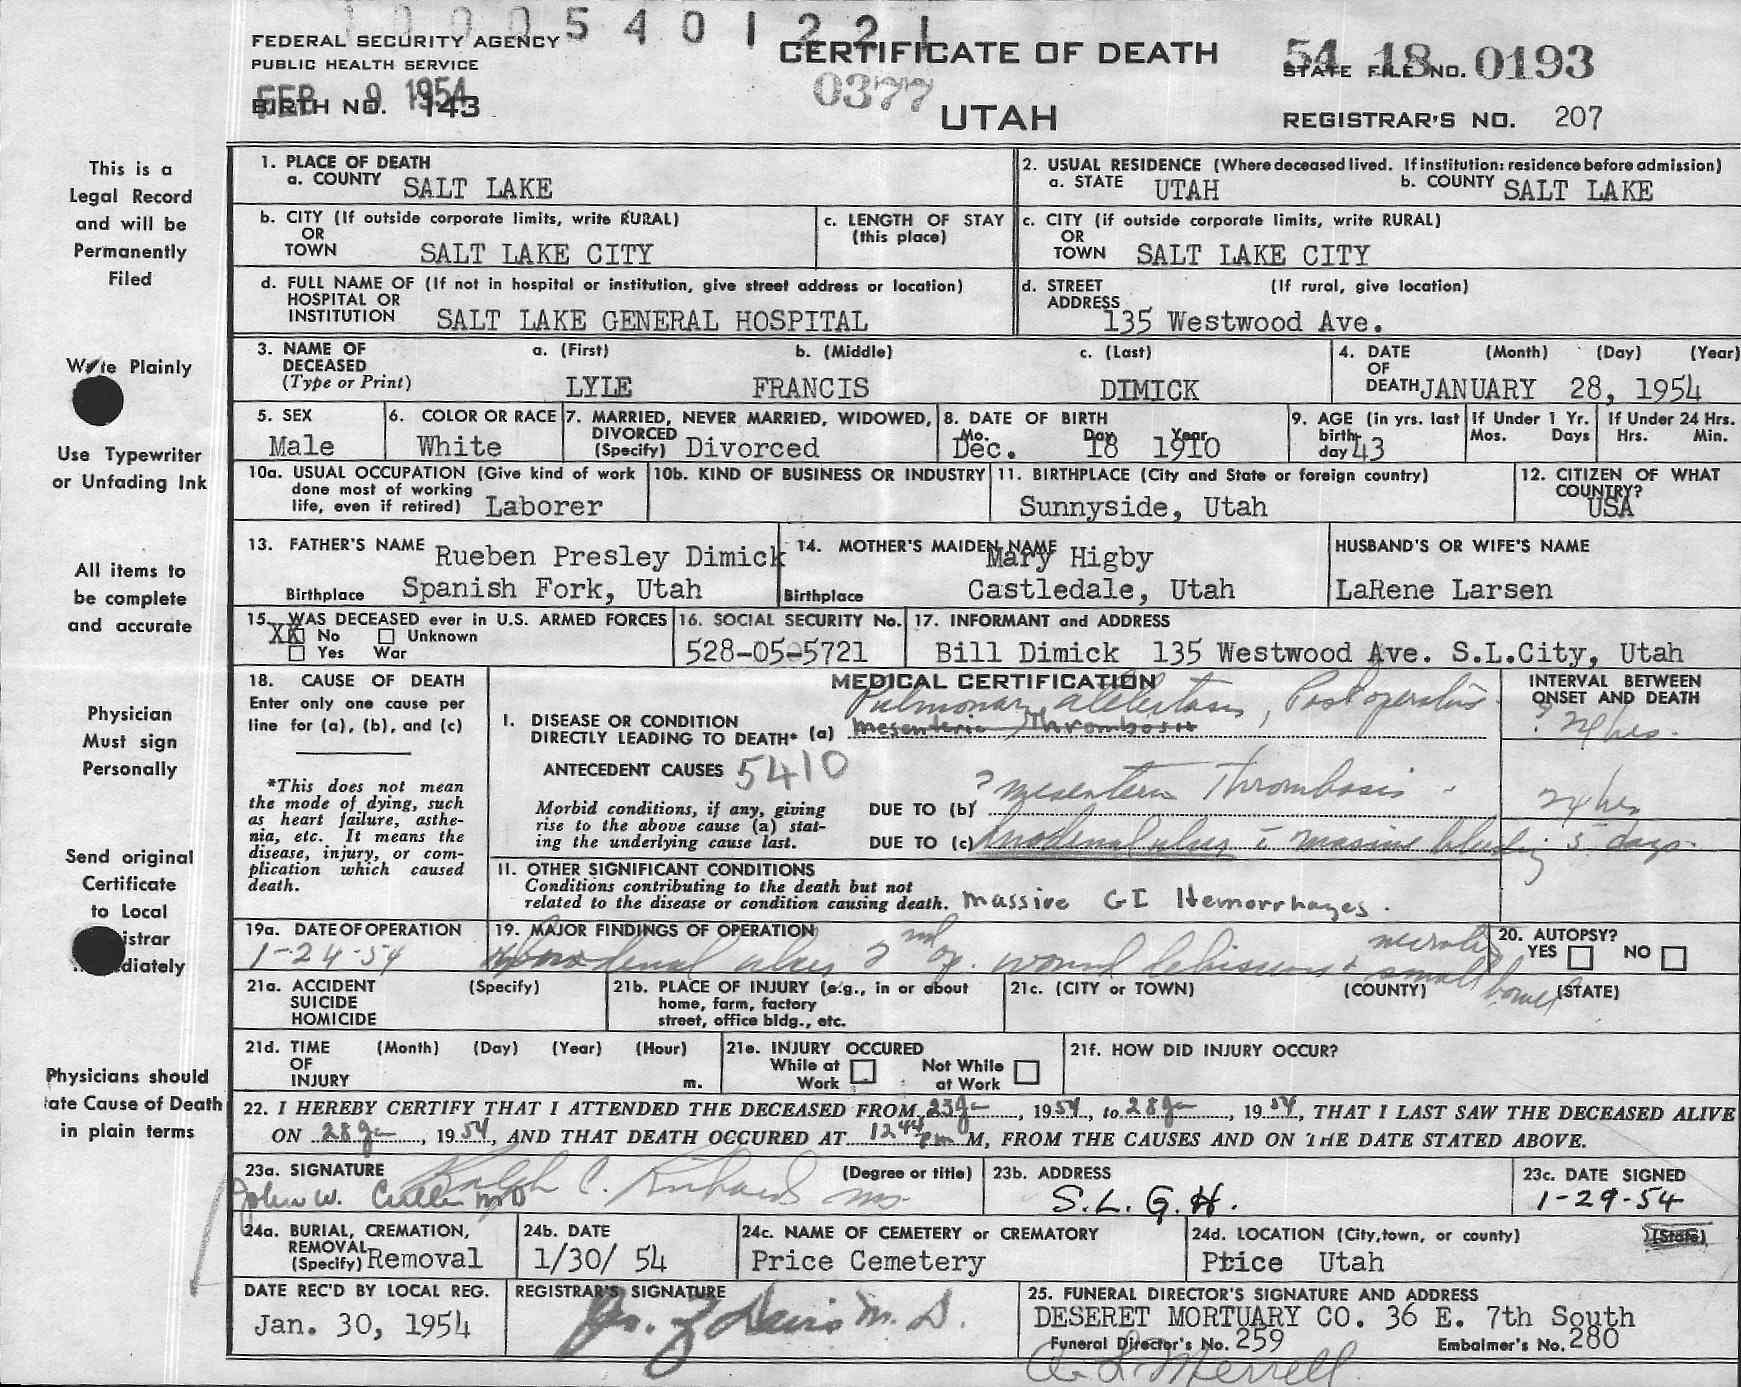 10005401221
FEDERAL SECURITY AGENCY
PUBLIC HEALTH SERVICE
FEB 9 1954
BIRTH NO. 143
CERTIFICATE OF DEATH
0377
UTAH
54 18 0193
STATE FILE NO.
REGISTRAR'S NO. 207
This is a
Legal Record
and will be
Permanently
Filed
Write Plainly
Use Typewriter
or Unfading Ink
All items to
be complete
and accurate
Physician
Must sign
Personally
Send original
Certificate
to Local
istrar
diately
Physicians should
ate Cause of Death
in plain terms
1. PLACE OF DEATH
a. COUNTY SALT LAKE
2. USUAL RESIDENCE (Where deceased lived. If institution: residence before admission)
a. STATE UTAH b. COUNTY SALT LAKE
b. CITY (If outside corporate limits, write RURAL)
OR
TOWN SALT LAKE CITY
c. LENGTH OF STAY
(this place)
c. CITY (if outside corporate limits, write RURAL)
OR
TOWN SALT LAKE CITY
d. FULL NAME OF (If not in hospital or institution, give street address or location)
HOSPITAL OR
INSTITUTION SALT LAKE GENERAL HOSPITAL
d. STREET (If rural, give location)
ADDRESS
135 Westwood Ave.
3. NAME OF a. (First) b. (Middle) c. (Last)
DECEASED
(Type or Print) LYLE FRANCIS DIMICK
4. DATE (Month) (Day) (Year)
OF
DEATH JANUARY 28, 1954
5. SEX
Male
6. COLOR OR RACE
White
7. MARRIED, NEVER MARRIED, WIDOWED,
DIVORCED
(Specify) Divorced
8. DATE OF BIRTH
Mo. Day Year
Dec. 18 1910
9. AGE (in yrs. last
birth-
day 43
If Under 1 Yr.
Mos. Days
If Under 24 Hrs.
Hrs. Min.
10a. USUAL OCCUPATION (Give kind of work
done most of working
life, even if retired) Laborer
10b. KIND OF BUSINESS OR INDUSTRY
11. BIRTHPLACE (City and State or foreign country)
Sunnyside, Utah
12. CITIZEN OF WHAT
COUNTRY?
USA
13. FATHER'S NAME Rueben Presley Dimick
Birthplace Spanish Fork, Utah
14. MOTHER'S MAIDEN NAME
Mary Higby
Birthplace Castledale, Utah
HUSBAND'S OR WIFE'S NAME
LaRene Larsen
15. WAS DECEASED ever in U.S. ARMED FORCES
XX No Unknown
Yes War
16. SOCIAL SECURITY No.
528-05-5721
17. INFORMANT and ADDRESS
Bill Dimick 135 Westwood Ave. S.L.City, Utah
18. CAUSE OF DEATH
Enter only one cause per
line for (a), (b), and (c)
*This does not mean
the mode of dying, such
as heart failure, asthe-
nia, etc. It means the
disease, injury, or com-
plication which caused
death.
MEDICAL CERTIFICATION
Pulmonary atelectasis, Postoperative
I. DISEASE OR CONDITION
DIRECTLY LEADING TO DEATH* (a) Mesenteric Thrombosis
ANTECEDENT CAUSES 5410
Morbid conditions, if any, giving
rise to the above cause (a) stat-
ing the underlying cause last.
DUE TO (b) ? Mesenteric Thrombosis
DUE TO (c) Duodenal ulcer c massive bleeding
INTERVAL BETWEEN
ONSET AND DEATH
? 24 hrs.
24 hrs
5 days
II. OTHER SIGNIFICANT CONDITIONS
Conditions contributing to the death but not
related to the disease or condition causing death. Massive GI Hemorrhages.
19a. DATE OF OPERATION
1-24-54
19. MAJOR FINDINGS OF OPERATION
duodenal ulcer 2nd op. wound dehiscence + necrotic small bowel
20. AUTOPSY?
YES NO
21a. ACCIDENT (Specify)
SUICIDE
HOMICIDE
21b. PLACE OF INJURY (e.g., in or about
home, farm, factory
street, office bldg., etc.
21c. (CITY or TOWN) (COUNTY) (STATE)
21d. TIME (Month) (Day) (Year) (Hour)
OF
INJURY m.
21e. INJURY OCCURED
While at Not While
Work at Work
21f. HOW DID INJURY OCCUR?
22. I HEREBY CERTIFY THAT I ATTENDED THE DECEASED FROM 23 Ja, 1954, to 28 Ja, 1954, THAT I LAST SAW THE DECEASED ALIVE
ON 28 Ja, 1954, AND THAT DEATH OCCURED AT 1244 pm M, FROM THE CAUSES AND ON THE DATE STATED ABOVE.
23a. SIGNATURE (Degree or title)
Ralph C. Richards MD
John W. Cullen MD
23b. ADDRESS
S.L.G.H.
23c. DATE SIGNED
1-29-54
24a. BURIAL, CREMATION,
REMOVAL
(Specify) Removal
24b. DATE
1/30/ 54
24c. NAME OF CEMETERY or CREMATORY
Price Cemetery
24d. LOCATION (City, town, or county) (State)
Price Utah
DATE REC'D BY LOCAL REG.
Jan. 30, 1954
REGISTRAR'S SIGNATURE
Davis M. D.
25. FUNERAL DIRECTOR'S SIGNATURE AND ADDRESS
DESERET MORTUARY CO. 36 E. 7th South
Funeral Director's No. 259 Embalmer's No. 280
Merrell